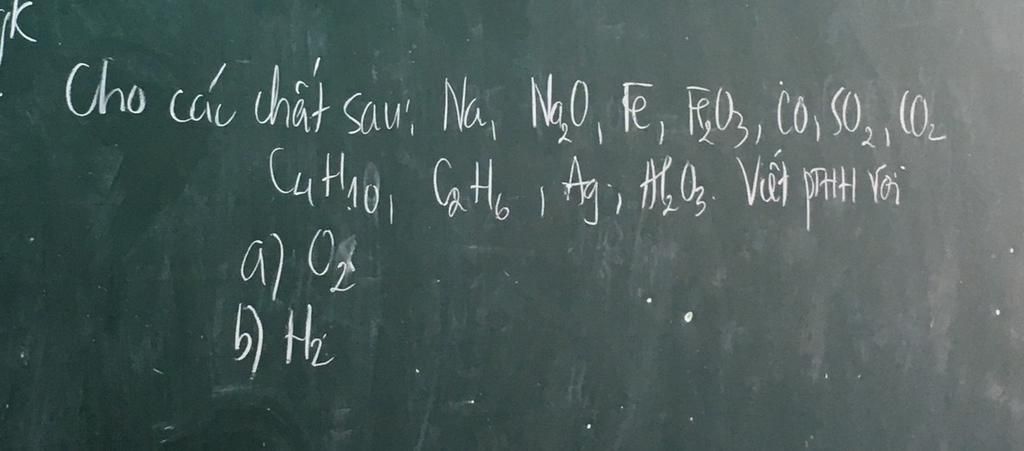 gk
Cho các chất sau: Na, Na₂O, Fe, Fe₂O₃, CO, SO₂, CO₂
C₄H₁₀, C₂H₆, Ag, Al₂O₃. Viết ptHH với
a) O₂
b) H₂